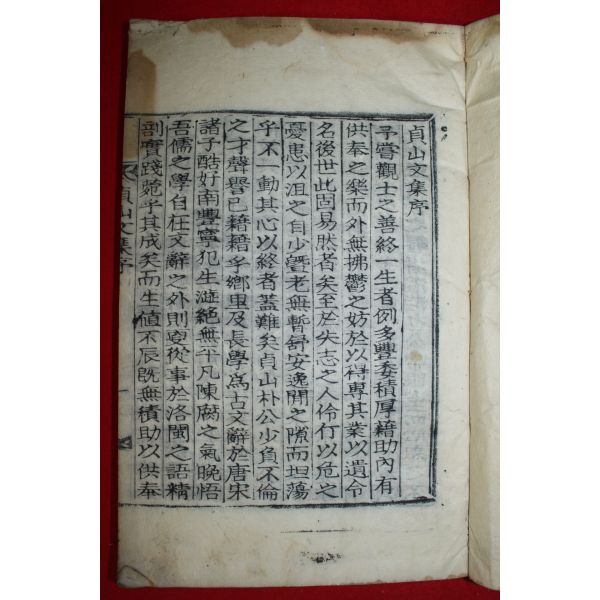 貞山文集序
予嘗觀士之善終一生者例多豐委積厚藉助內有
供奉之樂而外無拂鬱之妨於以得專其業以遺令
名後世此固易然者矣至於失志之人伶仃以危之
憂患以沮之自少曁老無暫舒安逸閒之隙而坦蕩
乎不一動其心以終者蓋難矣貞山朴公少負不倫
之才聲譽已藉藉乎鄕里及長學爲古文辭於唐宋
諸子酷好南豐寧犯生澁絕無平凡陳腐之氣晩悟
吾儒之學自在文辭之外則更從事於洛閩之語精
剖實踐菀乎其成矣而生値不辰旣無積助以供奉
貞山文集序